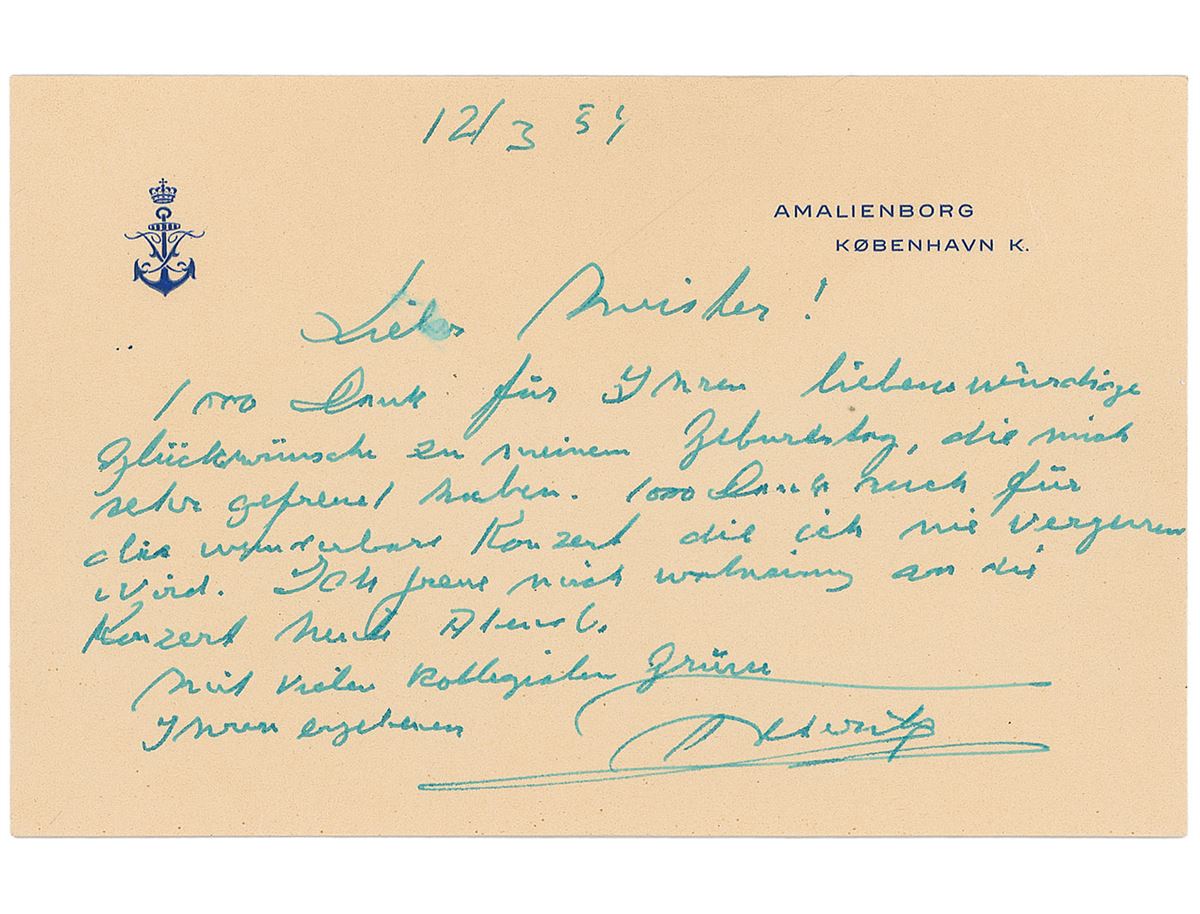 12/3 51
AMALIENBORG
KØBENHAVN K.
Lieber Meister!
1000 Dank für Ihren liebenswürdige
Glückwünsche zu meinem Geburtstag, die mich
sehr gefreut haben. 1000 Dank auch für
die wunderbare Konzert die ich nie vergessen
wird. Ich freue mich wahnsinnig an die
Konzert heute Abend.
Mit vielen kollegialen Grüsse
Ihren ergebenen